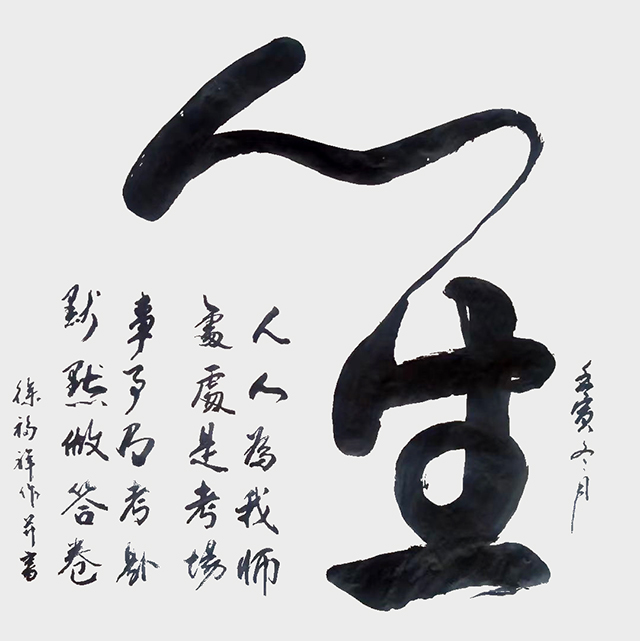 人生
壬寅冬月
人人為我師
處處是考場
事事为考題
默默做答卷
徐福祥作并書